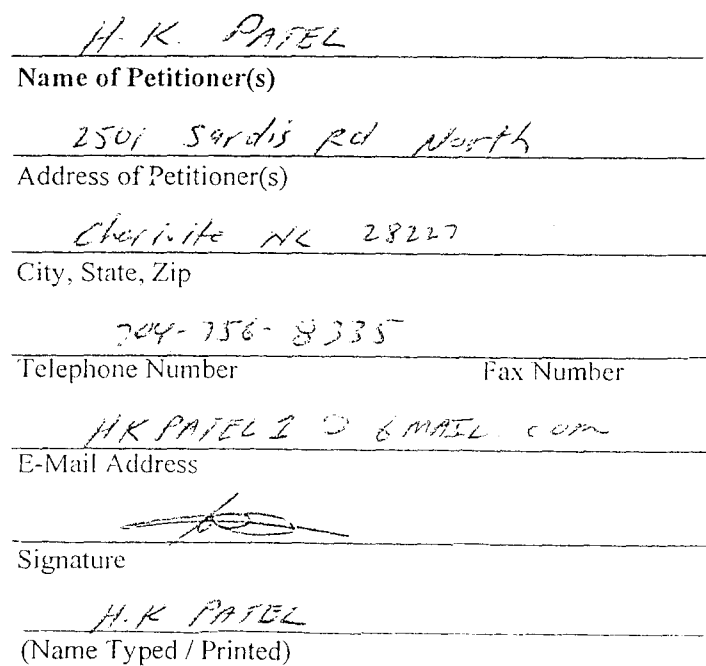 H. K. PATEL
Name of Petitioner(s)
2501 Sardis Rd North
Address of Petitioner(s)
Charlotte NC 28227
City, State, Zip
704-756-8335
Telephone Number Fax Number
HKPATEL1@GMAIL.com
E-Mail Address
Signature
H.K PATEL
(Name Typed / Printed)